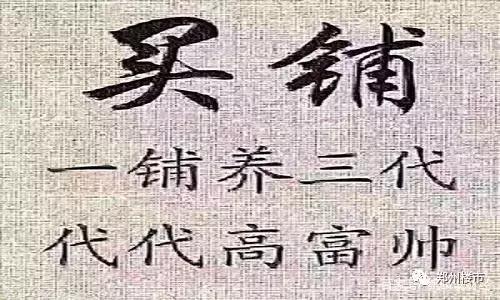 买铺
一铺养三代
代代高富帅
郑州楼市